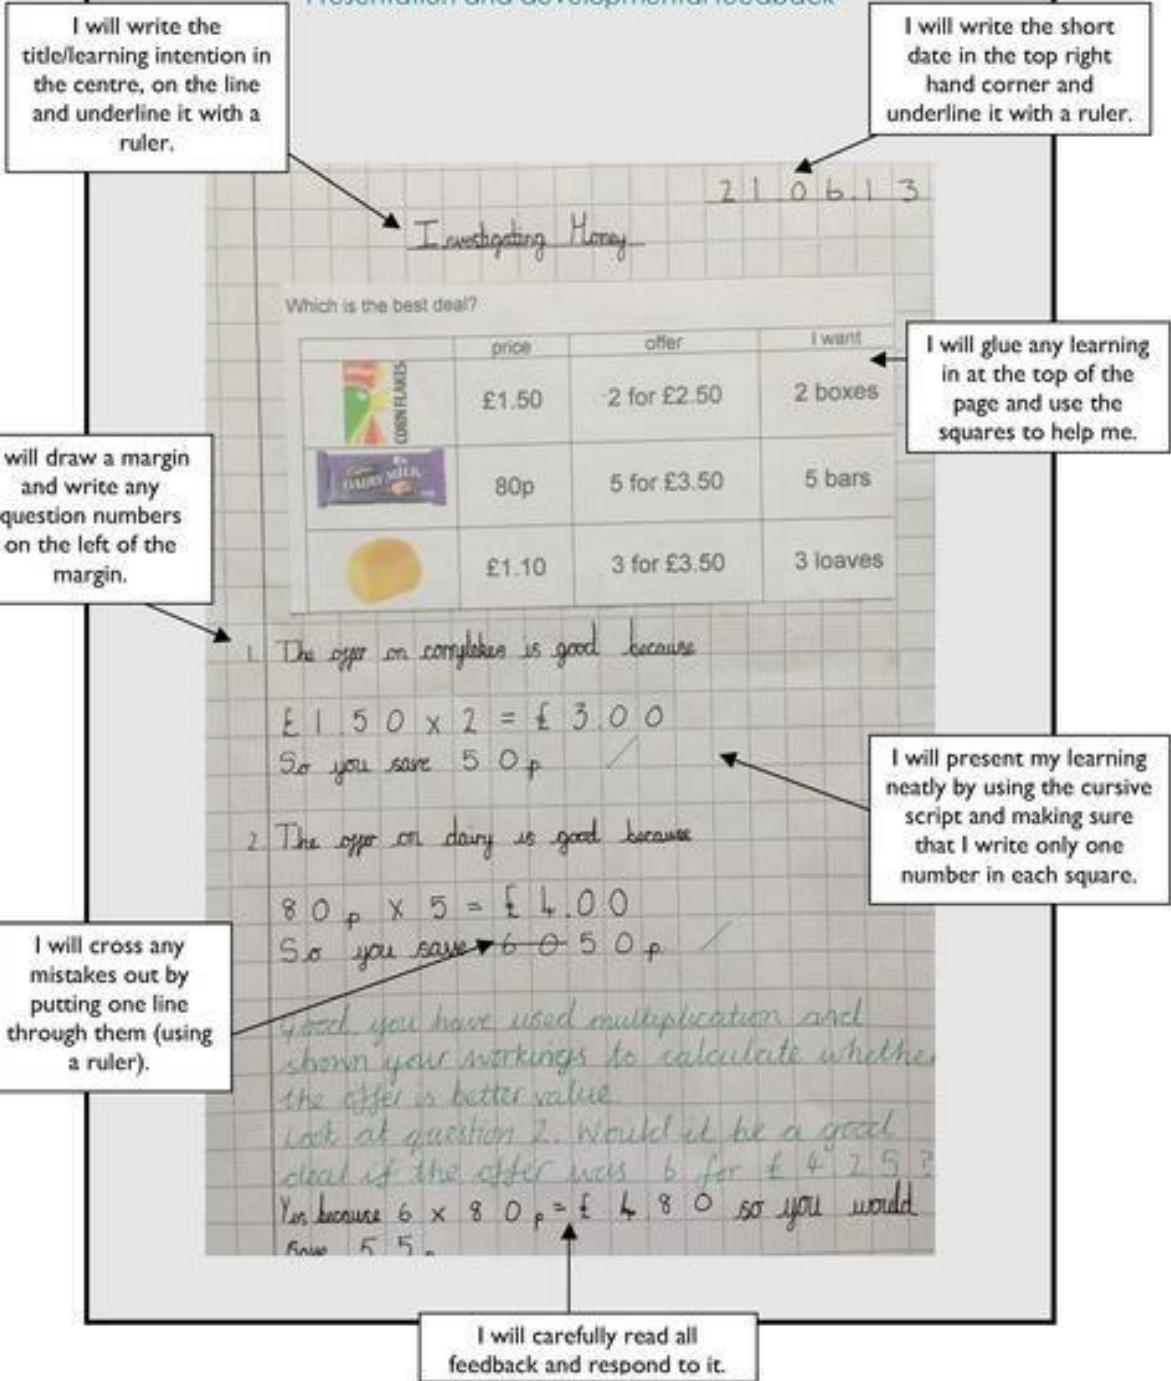 Presentation and developmental feedback
I will write the
title/learning intention in
the centre, on the line
and underline it with a
ruler.
I will write the short
date in the top right
hand corner and
underline it with a ruler.
21.06.13
Investigating Money
Which is the best deal?
price offer I want
CORN FLAKES £1.50 2 for £2.50 2 boxes
DAIRY MILK 80p 5 for £3.50 5 bars
£1.10 3 for £3.50 3 loaves
I will glue any learning
in at the top of the
page and use the
squares to help me.
will draw a margin
and write any
question numbers
on the left of the
margin.
1. The offer on cornflakes is good because
£1.50 x 2 = £3.00
So you save 50p
I will present my learning
neatly by using the cursive
script and making sure
that I write only one
number in each square.
2. The offer on dairy is good because
80p x 5 = £4.00
So you save 60 50p
I will cross any
mistakes out by
putting one line
through them (using
a ruler).
Good, you have used multiplication and
shown your workings to calculate whether
the offer is better value.
Look at question 2. Would it be a good
deal if the offer was 6 for £4.25?
Yes because 6 x 80p = £4.80 so you would
save 55p
I will carefully read all
feedback and respond to it.